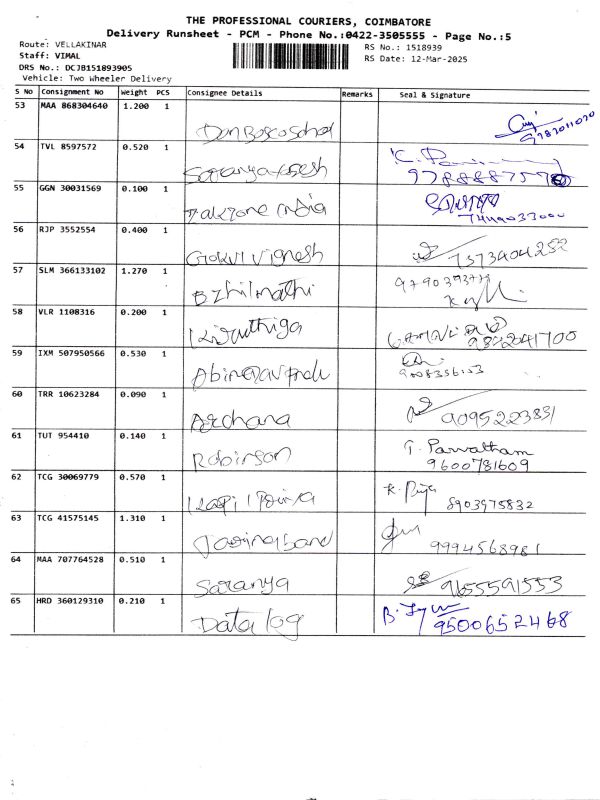 THE PROFESSIONAL COURIERS, COIMBATORE
Delivery Runsheet - PCM - Phone No.:0422-3505555 - Page No.:5
Route: VELLAKINAR RS No.: 1518939
Staff: VIMAL RS Date: 12-Mar-2025
DRS No.: DCJB151893905
Vehicle: Two Wheeler Delivery
S No Consignment No Weight PCS Consignee Details Remarks Seal & Signature
53 MAA 868304640 1.200 1
Don Bosco School
54 TVL 8597572 0.520 1
Saranya
55 GGN 30031569 0.100 1
india
56 RJP 3552554 0.400 1
Gokul Vignesh 7373404252
57 SLM 366133102 1.270 1
Ezhilmathi
58 VLR 1108316 0.200 1
Kiruthiga
59 IXM 507950566 0.530 1
60 TRR 10623284 0.090 1
Archana 9095223831
61 TUT 954410 0.140 1
Robinson T. Parvatham
9600781609
62 TCG 30069779 0.570 1
K. Priya
8903975832
63 TCG 41575145 1.310 1
9994568981
64 MAA 707764528 0.510 1
Saranya 9655591553
65 HRD 360129310 0.210 1
Data log 9500652468